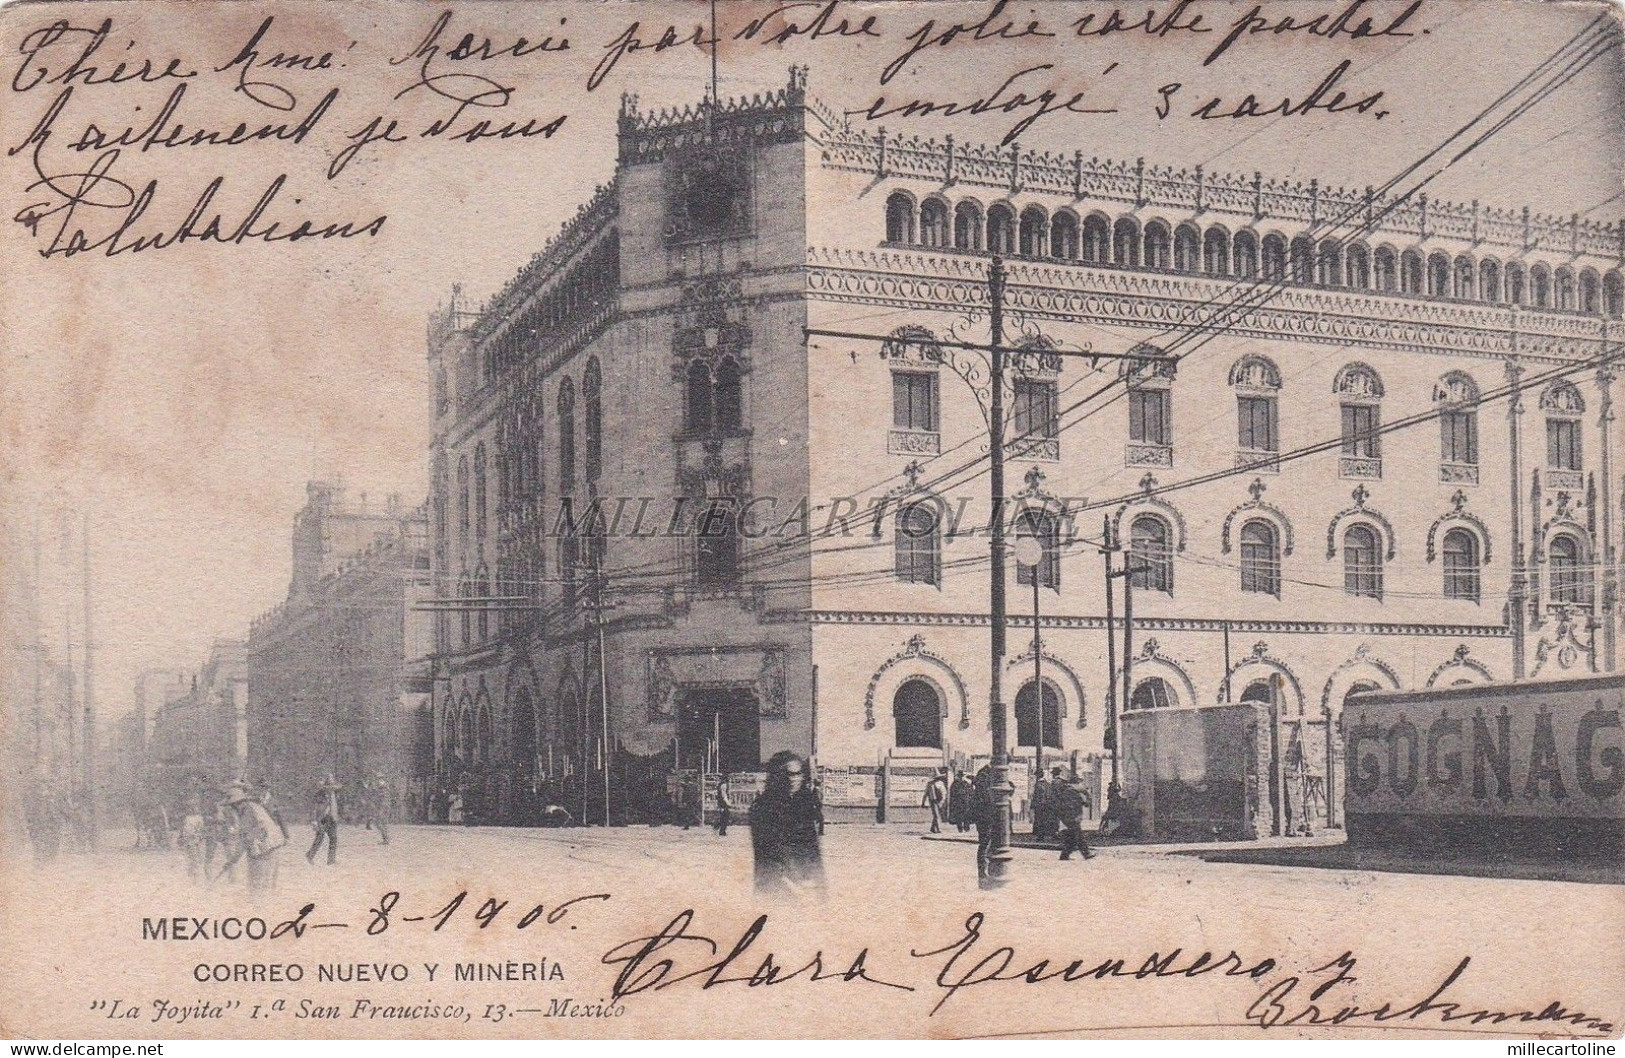 Chére Mme. Mercie par votre jolie carte postal.
Maitenent je vous envoyé 3 cartes.
Salutations
MILLECARTOLINE
GOGNAG
MEXICO 2-8-1906.
CORREO NUEVO Y MINERÍA
"La Joyita" 1.ª San Francisco, 13.—Mexico
Clara Escudero y
Brockmann
millecartoline